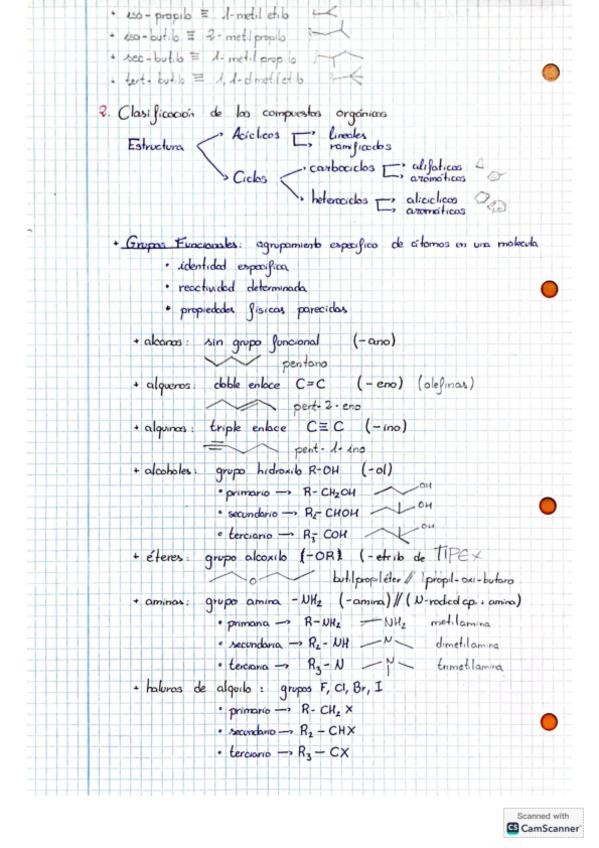 + iso-propilo ≡ 1-metil etilo
+ iso-butilo ≡ 2-metilpropilo
+ sec-butilo ≡ 1-metil propilo
+ tert-butilo ≡ 1,1-dimetiletilo
2. Clasificación de los compuestos orgánicos
Estructura
Acíclicos
lineales
ramificados
Ciclos
carbociclos
alifáticos
aromáticos
heterociclos
alicíclicos
aromáticos
+ Grupos Funcionales: agrupamiento específico de átomos en una molécula
• identidad específica
• reactividad determinada
• propiedades físicas parecidas
+ alcanos: sin grupo funcional (-ano)
pentano
+ alquenos: doble enlace C=C (-eno) (olefinas)
pent-2-eno
+ alquinos: triple enlace C≡C (-ino)
pent-1-ino
+ alcoholes: grupo hidroxilo R-OH (-ol)
• primario → R-CH₂OH OH
• secundario → R₂-CHOH OH
• terciario → R₃-COH OH
+ éteres: grupo alcoxilo (-OR) (-etrib de TIPEX
O butilpropiléter // 1propil-oxi-butano
+ aminas: grupo amina -NH₂ (-amina)//(N-radical p. amina)
• primaria → R-NH₂ —NH₂ metilamina
• secundaria → R₂-NH N dimetilamina
• terciaria → R₃-N N trimetilamina
+ haluros de alquilo: grupos F, Cl, Br, I
• primario → R-CH₂X
• secundario → R₂-CHX
• terciario → R₃-CX
Scanned with
CS CamScanner